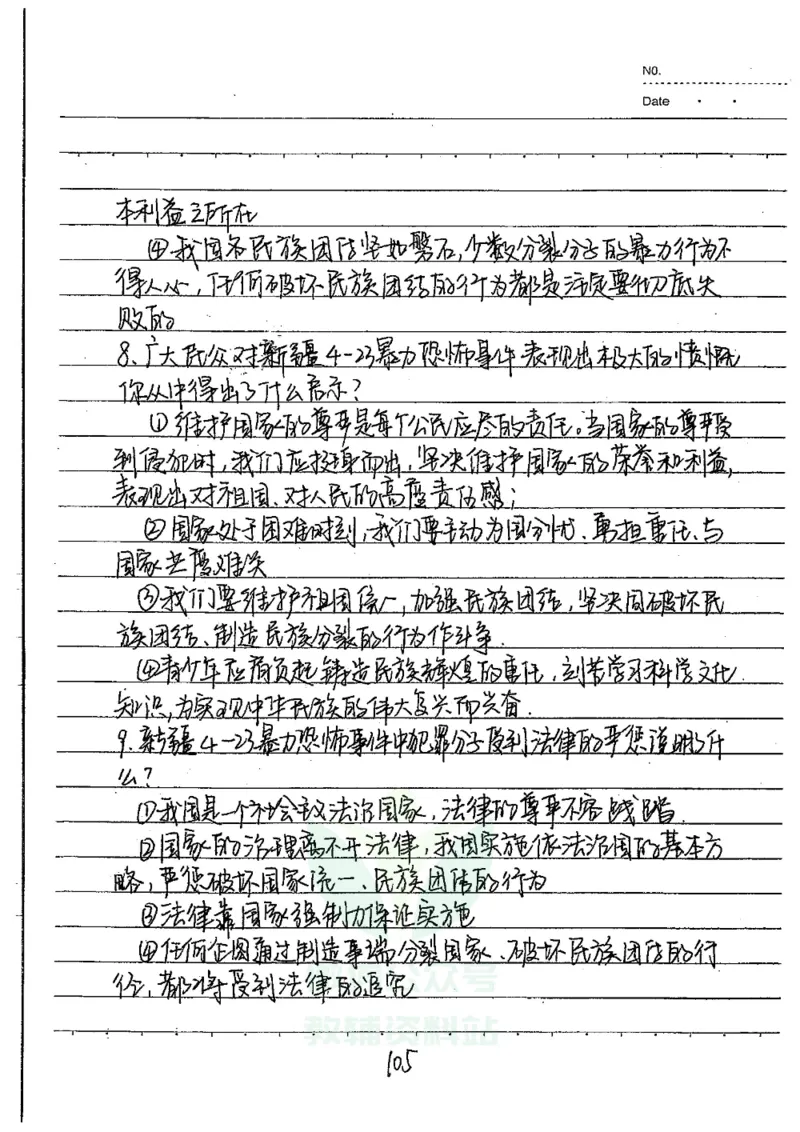 NO.
Date
本利益之所在
④我国各民族团结坚如磐石,少数分裂分子的暴力行为不
得人心,任何破坏民族团结的行为都是注定要彻底失
败的
8、广大民众对新疆4-23暴力恐怖事件表现出极大的愤慨
你从中得出了什么启示?
①维护国家的尊严是每个公民应尽的责任。当国家的尊严受
到侵犯时,我们应挺身而出,坚决维护国家的荣誉和利益,
表现出对祖国、对人民的高度责任感;
②国家处于困难时刻,我们要主动为国分忧、勇担重任、与
国家共度难关
③我们要维护祖国统一,加强民族团结,坚决同破坏民
族团结、制造民族分裂的行为作斗争.
④青少年应肩负起铸造民族辉煌的重任,刻苦学习科学文化
知识,为实现中华民族的伟大复兴而兴奋.
9.新疆4-23暴力恐怖事件中犯罪分子受到法律的严惩说明了什
么?
①我国是一个社会主义法治国家,法律的尊严不容践踏.
②国家的治理离不开法律,我国实施依法治国的基本方
略,严惩破坏国家统一、民族团结的行为
③法律靠国家强制力保证实施
④任何企图通过制造事端分裂国家、破坏民族团结的行
径,都将受到法律的追究
公众号
教辅资料站
105